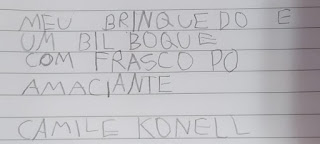 MEU BRINQUEDO E
UM BIL BOQUE
COM FRASCO PO
AMACIANTE
CAMILE KONELL